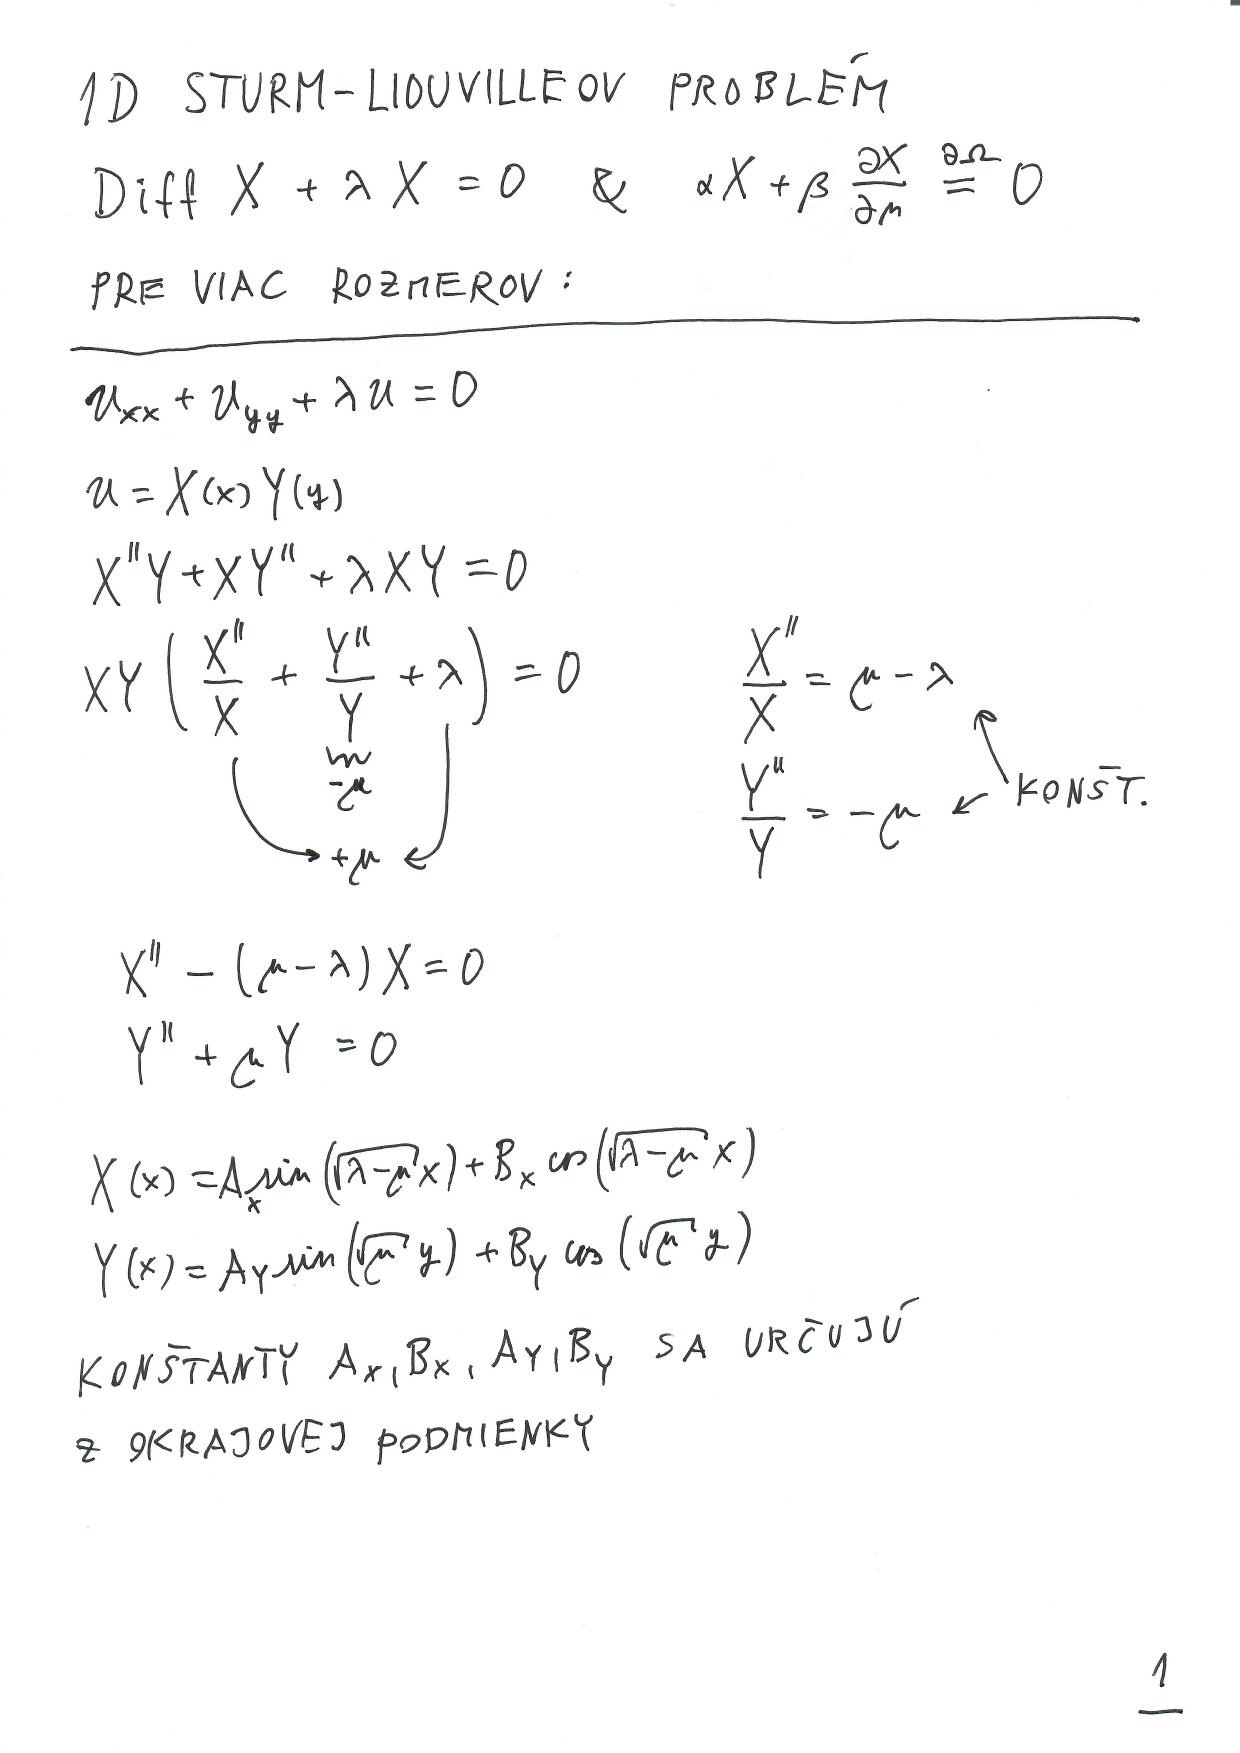 1D STURM-LIOUVILLEOV PROBLÉM
Diff X + λX = 0 & αX + β ∂X/∂n =^{∂Ω} 0
PRE VIAC ROZMEROV:
u_xx + u_yy + λu = 0
u = X(x) Y(y)
X"Y + XY" + λXY = 0
XY ( X"/X + Y"/Y + λ ) = 0
-μ
+μ
X"/X = μ - λ
Y"/Y = -μ
KONŠT.
X" - (μ - λ) X = 0
Y" + μY = 0
X(x) = A_x sin(√(λ-μ) x) + B_x cos(√(λ-μ) x)
Y(x) = A_Y sin(√μ y) + B_Y cos(√μ y)
KONŠTANTY A_x, B_x, A_Y, B_Y SA URČUJÚ
Z OKRAJOVEJ PODMIENKY
1